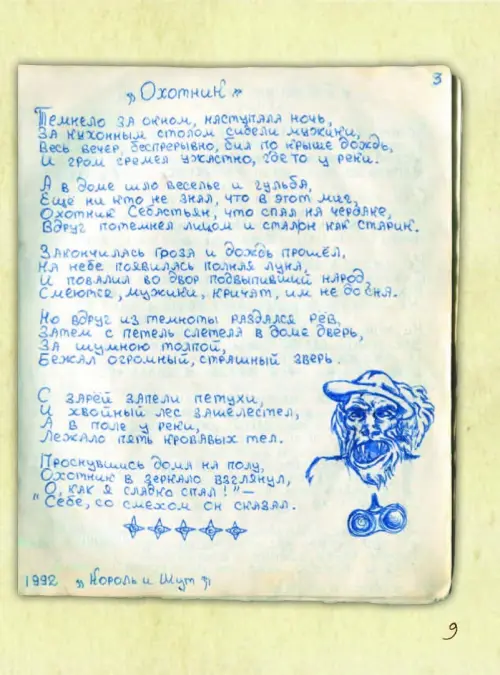 3
„Охотник"
Темнело за окном, наступала ночь,
За кухонным столом сидели мужики,
Весь вечер, беспрерывно, бил по крыше дождь,
И гром гремел ужастно, где то у реки.
А в доме шло веселье и гульба,
Ещё ни кто не знал, что в этот миг,
Охотник Себастьян, что спал на чердаке,
Вдруг потемнел лицом и стал он как старик.
Закончилась гроза и дождь прошёл,
На небе появилась полная луна,
И повалил во двор подвыпивший народ,
Смеются, мужики, кричат, им не до сна.
Но вдруг из темноты раздался рёв,
Затем с петель слетела в доме дверь,
За шумною толпой,
Бежал огромный, страшный зверь.
С зарёй запели петухи,
И хвойный лес зашелестел,
А в поле у реки,
Лежало пять кровавых тел.
Проснувшись дома на полу,
Охотник в зеркало взглянул,
„О, как я сладко спал!"—
Себе, со смехом он сказал.
1992 „Король и Шут"
9